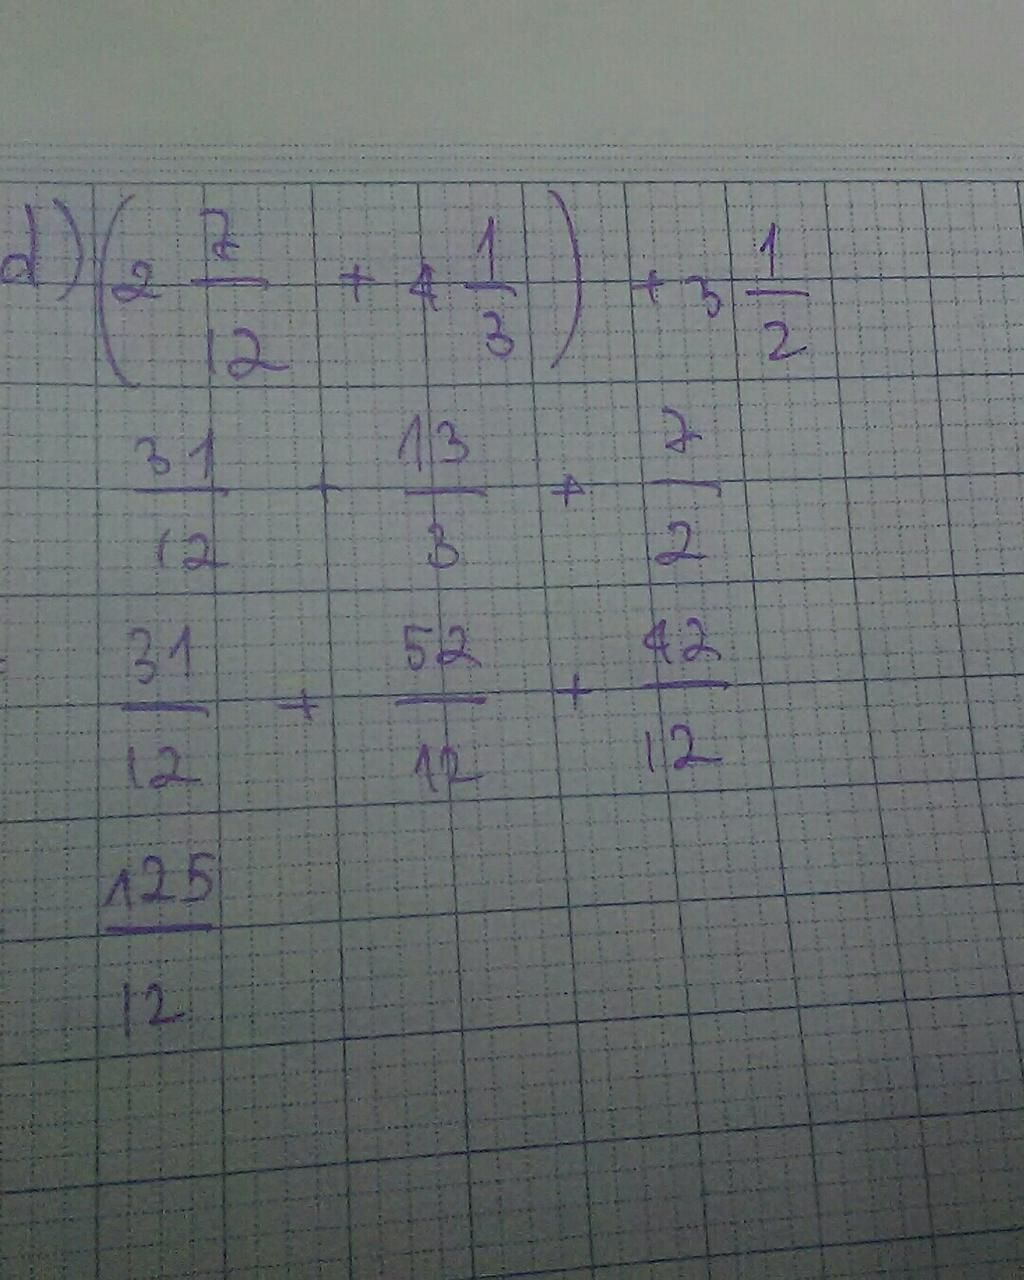 d) (2 7/12 + 4 1/3) + 3 1/2
31/12 + 13/3 + 7/2
= 31/12 + 52/12 + 42/12
125/12